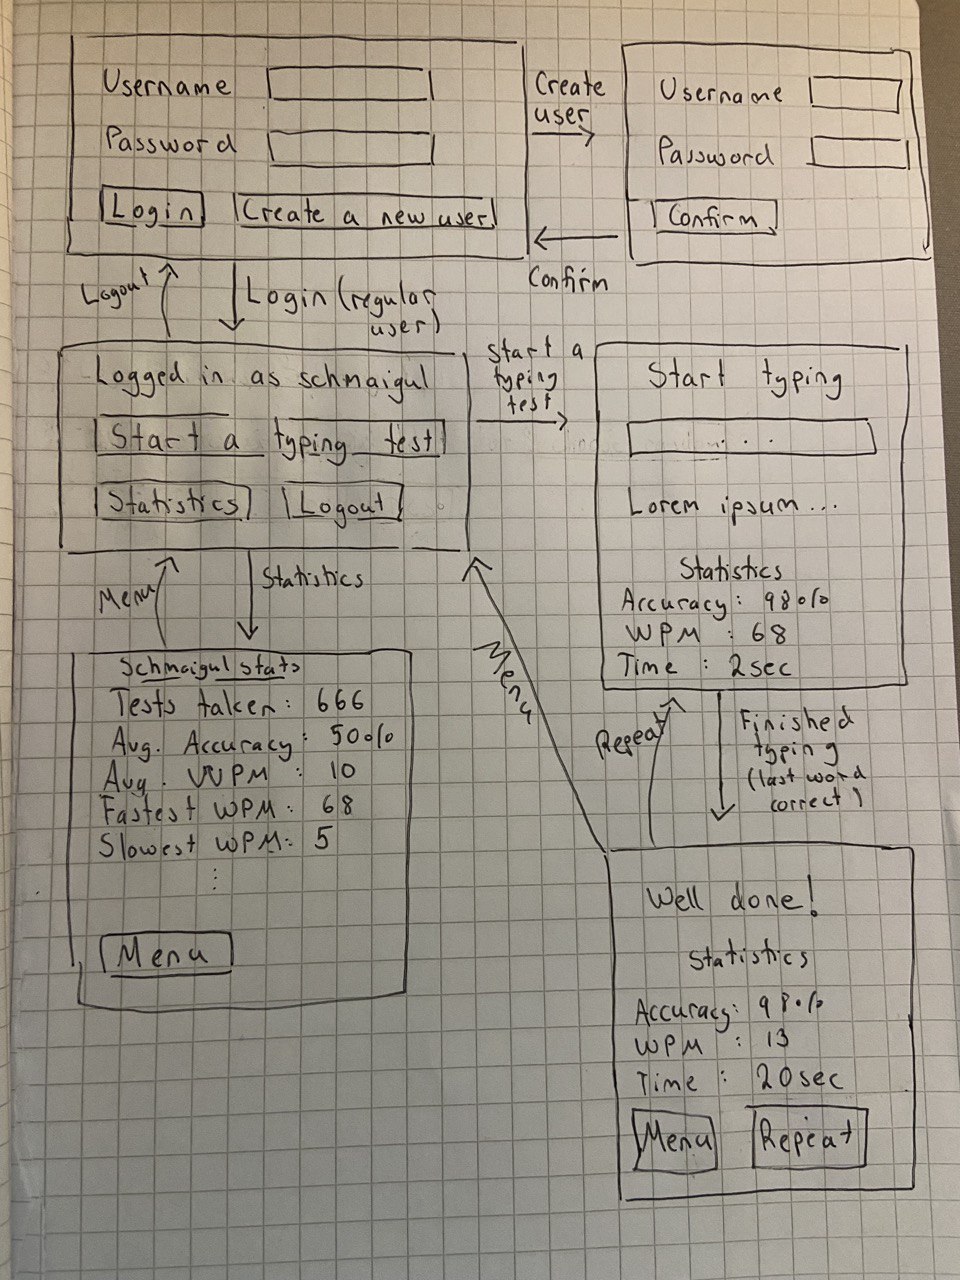 Username
Password
Login
Create a new user
Create
user
Username
Password
Confirm
Confirm
Logout
Login (regular
user)
Logged in as schmaigul
Start a typing test
Statistics
Logout
Start a
typing
test
Start typing
...
Lorem ipsum...
Statistics
Accuracy: 98%
WPM : 68
Time : 2sec
Menu
Statistics
Schmaigul stats
Tests taken: 666
Avg. Accuracy: 50%
Avg. WPM : 10
Fastest WPM: 68
Slowest WPM: 5
⋮
Menu
Menu
Repeat
Finished
typing
(last word
correct)
Well done!
Statistics
Accuracy: 98%
WPM : 13
Time : 20sec
Menu
Repeat